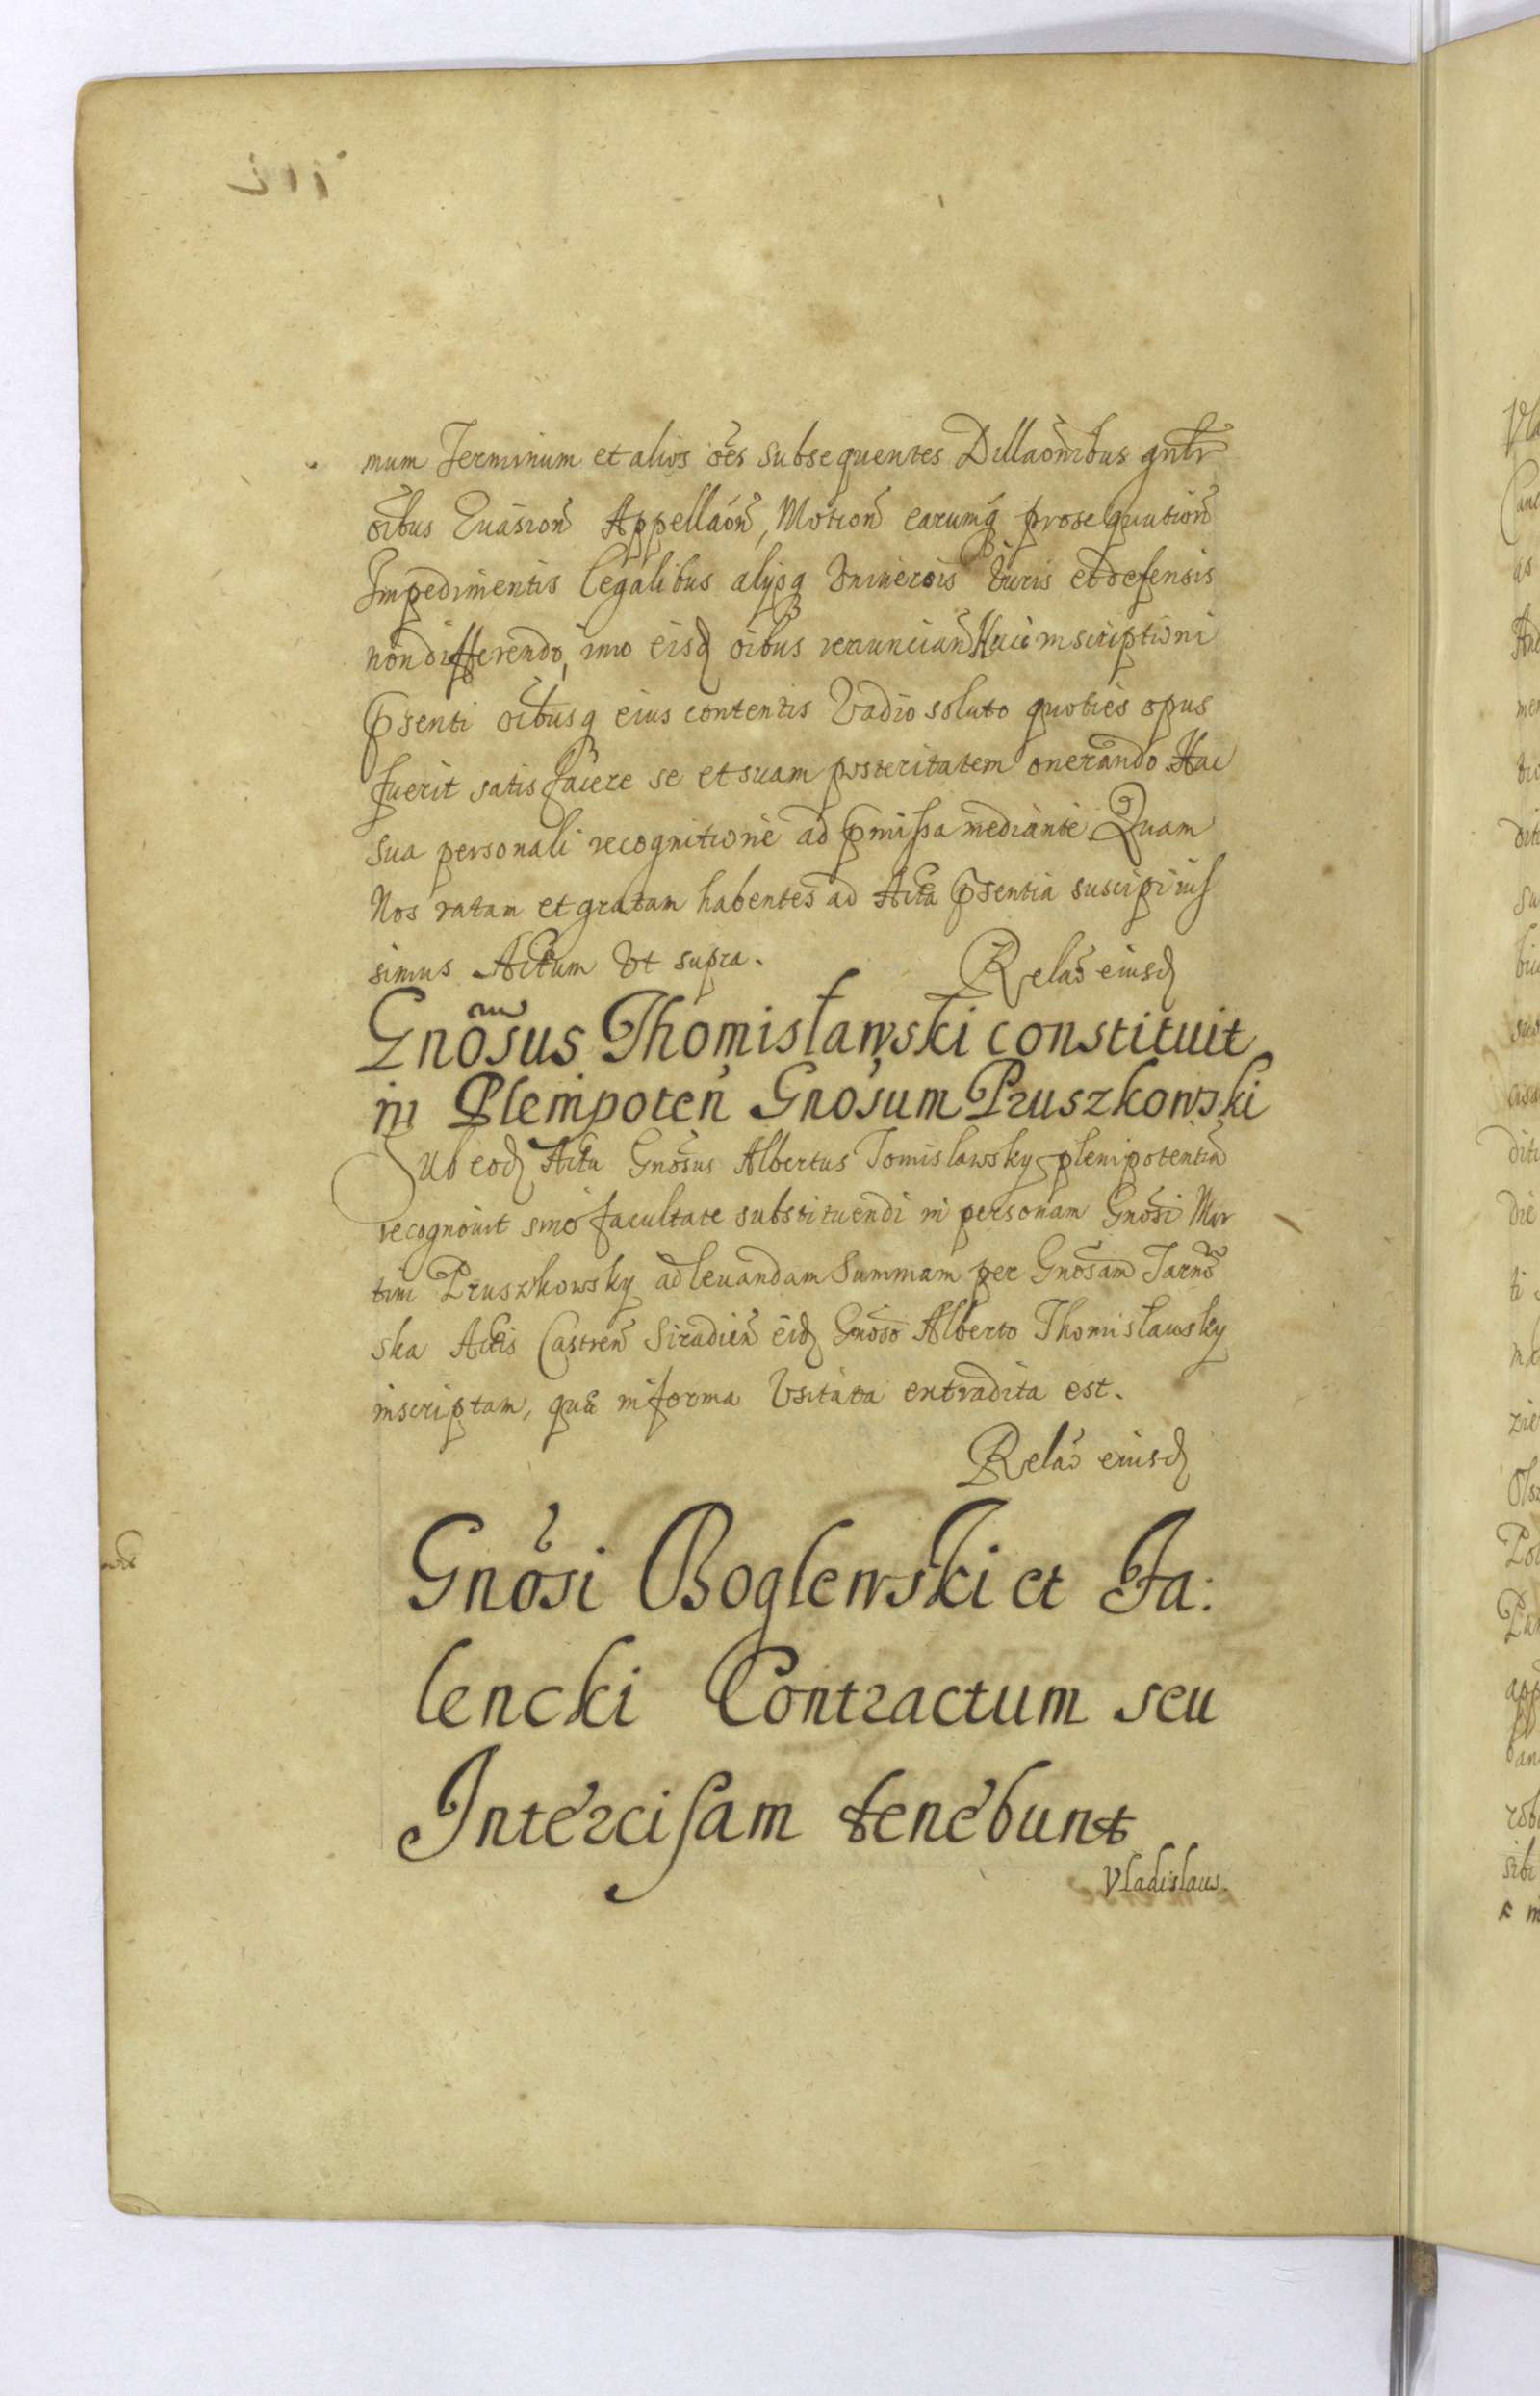 mum Terminum et alios oẽs subsequentes Dillaõnibus gñlr
oĩbus Euasioñ Appellaoñ, Motioñ earumq prosequutioñ
Impedimentis legalibus alijsq Vniuersis Iuris et defensis
non differendo, imo eisd oĩbus renuncian̄ Huic inscriptioni
pσenti oĩbusq eius contentis Vadio soluto quoties opus
fuerit satisfacere se et suam posteritatem onerando Hac
sua personali recognitione ad pmissa mediante Quam
Nos ratam et gratam habentes ad Acta psentia suscipiuis
simus Actum Vt supra.
Relaō eiusd
Gnōsus Thomisławski constituit
in Plenipoteñ Gnosum Pruszkowski
Sub eod Actu Gnõsus Albertus Tomislawsky plenipotentiã
recognouit sine facultate substituendi in personam Gnõsi Mar
tini Pruszkowsky ad leuandam Summam per Gnõsam Jarnõ
ska Actis Castreñ Siradieñ eid Gnõso Alberto Thomislawsky
inscriptam, quæ in forma Vsitata extradita est.
Relaō eiusd
Gnõsi Boglewski et Ja:
lencki Contractum seu
Intercisam tenebunt
Vladislaus.